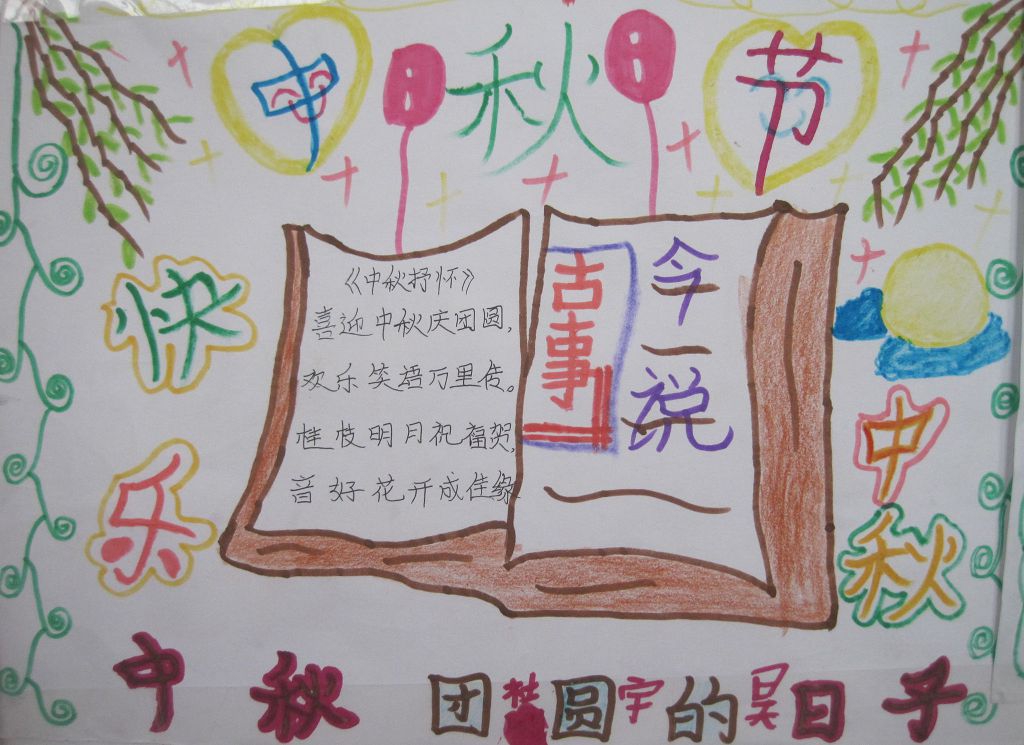 中秋节
快乐
《中秋抒怀》
喜迎中秋庆团圆,
欢乐笑语万里传。
桂枝明月祝福贺,
音好花开成佳缘
古事
今说
中秋
中秋团圆的日子
宇
吴